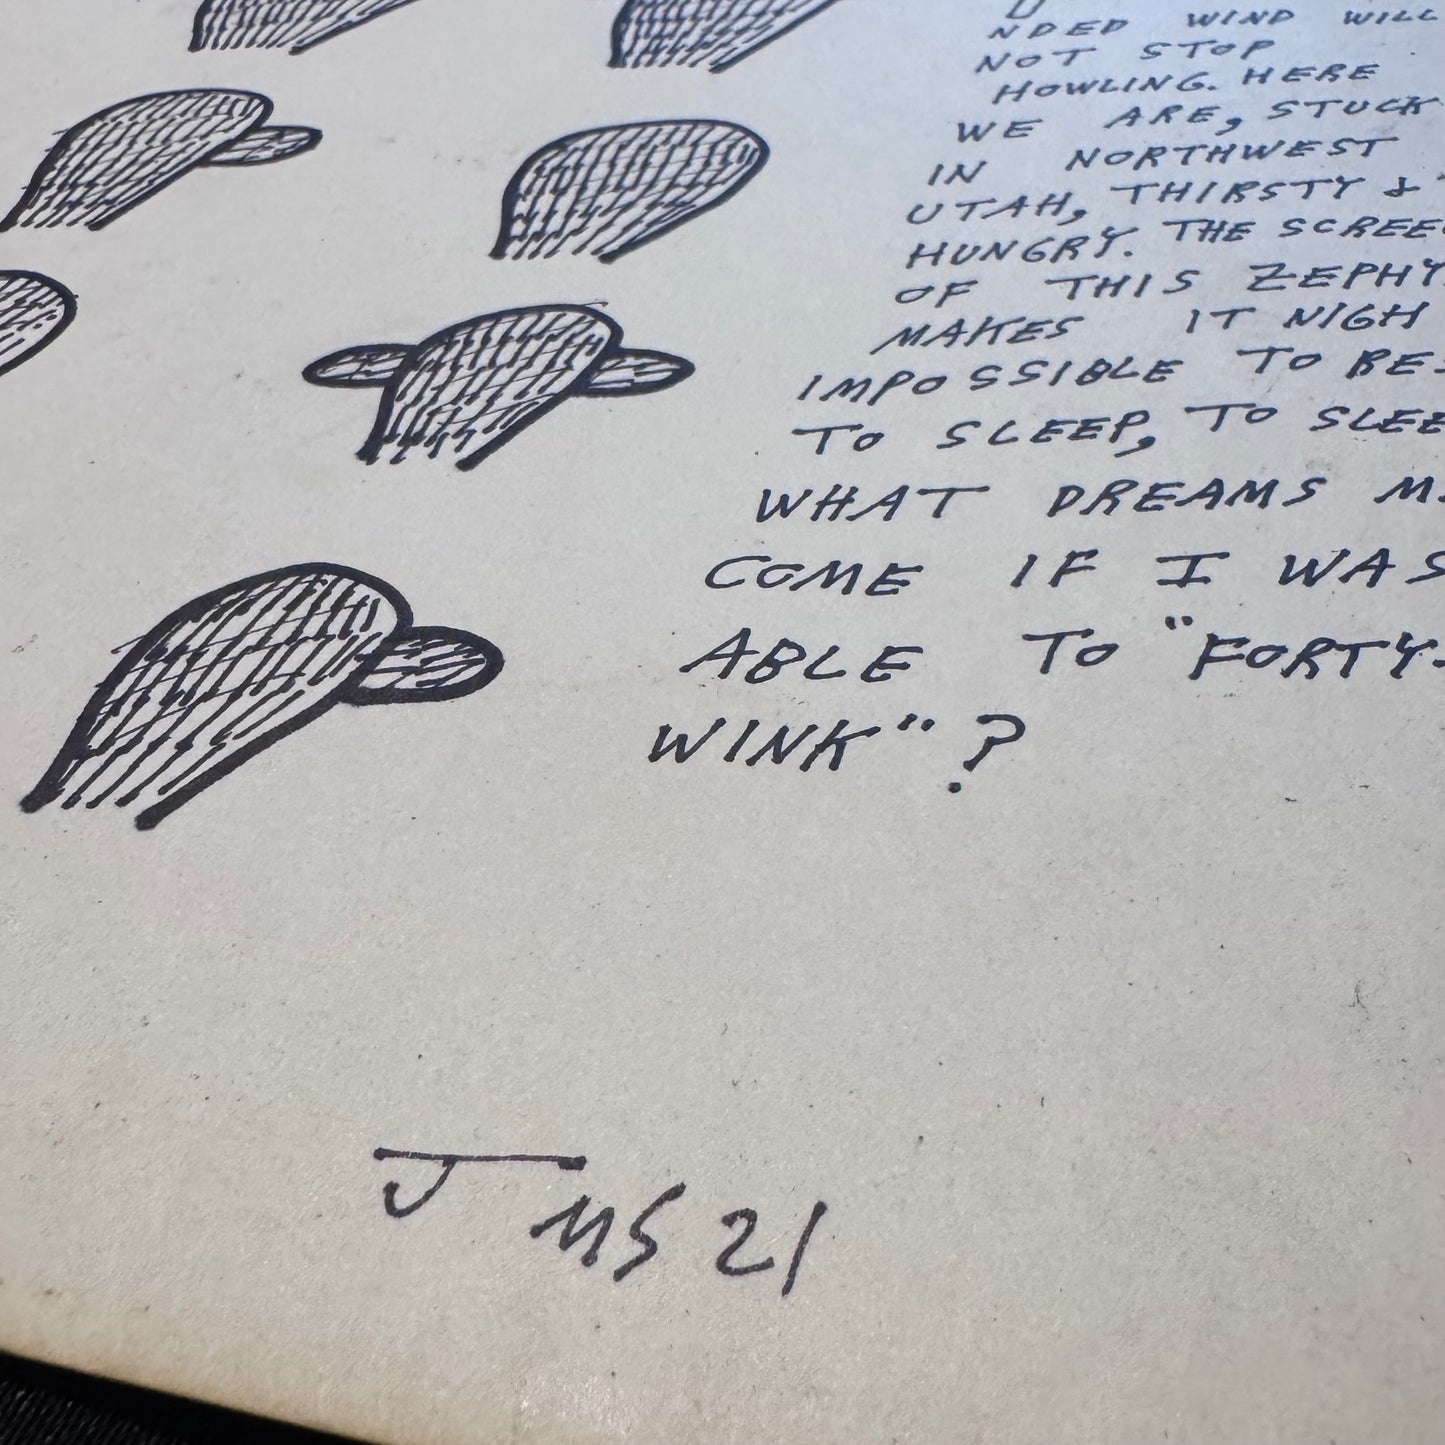 NDED WIND WILL
NOT STOP
HOWLING. HERE
WE ARE, STUCK
IN NORTHWEST
UTAH, THIRSTY &
HUNGRY. THE SCREE
OF THIS ZEPHY
MAKES IT NIGH
IMPOSSIBLE TO BE
TO SLEEP, TO SLEE
WHAT DREAMS M
COME IF I WAS
ABLE TO "FORTY-
WINK"?
J MS 21